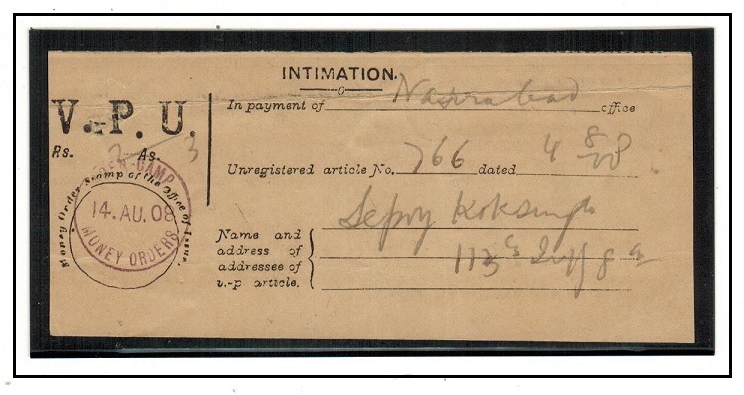 INTIMATION.
In payment of Nasirabad office
V.-P. U.
Rs. 2 As. 3
Unregistered article No. 766 dated 4 8/08
Money Order Stamp of the Office of Issue.
CAMP
14. AU. 08
MONEY ORDERS
Sepoy
Name and
address of
addressee of
v.-p article.
113